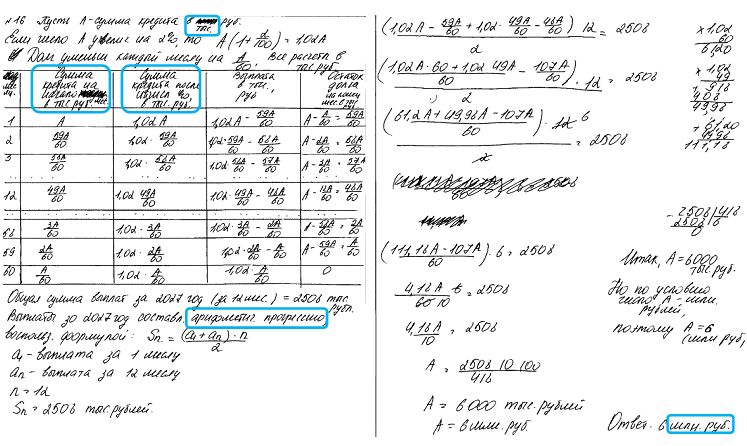 №16 Пусть А-сумма кредита в тыс руб.
Если число А увелич на 2%, то А(1+2/100)=1,02А
Долг уменьш каждый месяц на А/60. Все расчеты в тыс. руб.
Сумма кредита на начало мес. в тыс. руб
Сумма кредита после начисл %, в тыс. руб.
Выплата в тыс. руб
Остаток долга на конец мес.
1 А 1,02А 1,02А - 59А/60 А - А/60 = 59А/60
2 59А/60 1,02·59А/60 1,02·59А/60 - 58А/60 А - 2А/60 = 58А/60
3 58А/60 1,02·58А/60 1,02·58А/60 - 57А/60 А - 3А/60 = 57А/60
12 49А/60 1,02·49А/60 1,02·49А/60 - 48А/60 А - 12А/60 = 48А/60
58 3А/60 1,02·3А/60 1,02·3А/60 - 2А/60 А - 58А/60 = 2А/60
59 2А/60 1,02·2А/60 1,02·2А/60 - А/60 А - 59А/60 = А/60
60 А/60 1,02·А/60 1,02·А/60 0
Общая сумма выплат за 2027 год (за 12 мес.) = 2508 тыс рубл.
Выплаты за 2027 год составл. арифметич. прогрессию
воспольз. формулой: Sn = (a1+an)·n/2
a1 - выплата за 1 месяц
an - выплата за 12 месяц
n=12
Sn = 2508 тыс.рублей.
(1,02А - 59А/60 + 1,02·49А/60 - 48А/60)·12/2 = 2508
(1,02А·60+1,02·49А/60 - 107А/60)·12/2 = 2508
(61,2А+49,98А-107А/60)·12 6/2 = 2508
(111,18А-107А/60)·6 = 2508
4,18А·6/60 10 = 2508
4,18А/10 = 2508
А = 2508·10·100/418
А = 6000 тыс. рублей
А = 6 млн. руб.
×1,02
60
61,20
×1,02
49
918
408
49,98
+61,20
49,98
111,18
2508|418
2508|6
0
Итак, А=6000 тыс. руб.
Но по условию число А - млн. рублей,
поэтому А=6 (млн руб)
Ответ. 6 млн. руб.